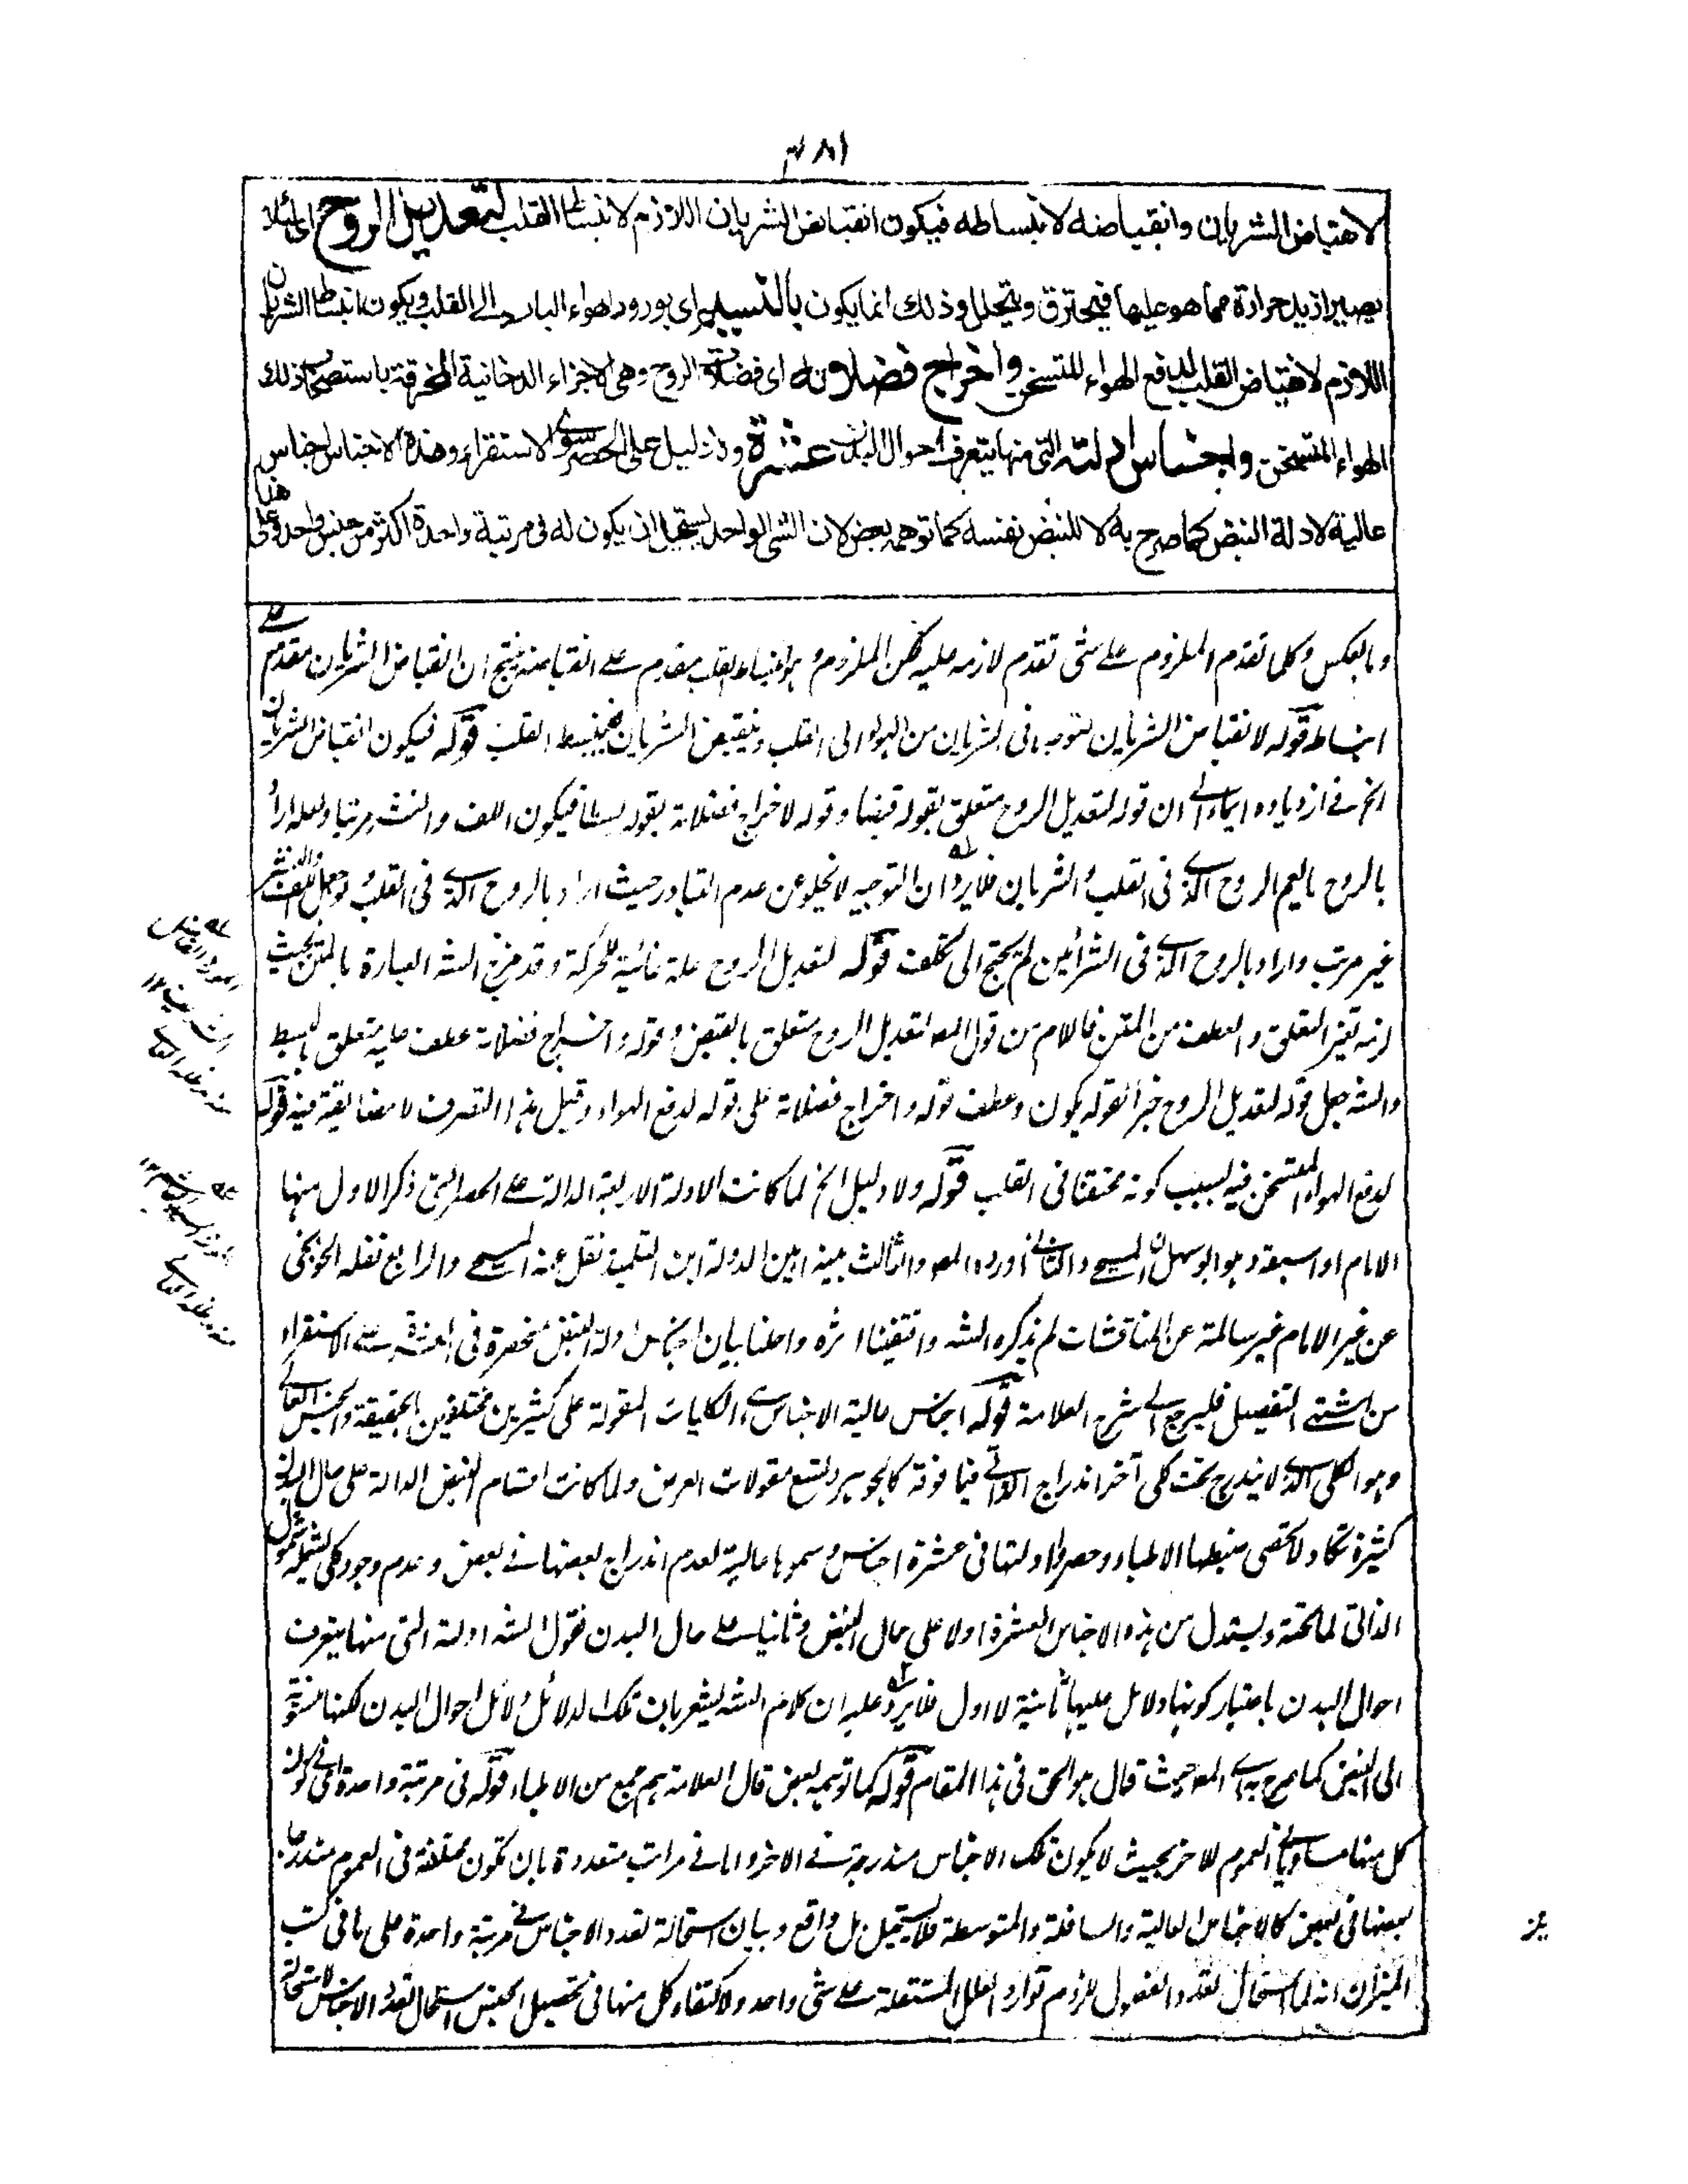 ٤٨١
لانقباض الشريان وانقباضه لانبساطه فيكون انقباض الشريان اللازم لانبساط القلب لتعديل الروح اى لئلا
يصير ازيد حرارة مما هو عليها فيحترق ويتحلل وذلك انما يكون بالنسيم اى بورود الهواء البارد الى القلب ويكون انبساط الشريان
اللازم لانقباض القلب لدفع الهواء المتسخن واخراج فضلاته اى فضلات الروح وهى الاجزاء الدخانية المحترقة باستصحاب ذلك
الهواء المتسخن واجناس ادلته التى منها يتعرف احوال البدن عشرة ولا دليل على الحصر سوى الاستقراء وهذه الاجناس اجناس
عالية لادلة النبض كما صرح به لا للنبض نفسه كما توهمه بعض لان الشى الواحد يستحيل ان يكون له فى مرتبة واحدة اكثر من جنس واحد وعلى هذا
وبالعكس وكلما تقدم الملزوم على شى تقدم لازمه عليه لكن الملزوم وهو انبساط القلب مقدم على انقباضه ينتج ان انقباض الشريان مقدم على
انبساطه قوله لانقباض الشريان لتوجه ما فى الشريان من الهواء الى القلب وينقبض الشريان فينبسط القلب قوله فيكون انقباض الشريان
الخ فى ازدياده ايماء الى ان قوله لتعديل الروح متعلق بقوله قبضا وقوله لاخراج فضلاته بقوله بسطا فيكون اللف والنشر مرتبا ولعله اراد
بالروح ما يعم الروح الذى فى القلب والشريان فلا يرد ان التوجيه لا يخلو عن عدم التبادر حيث اراد بالروح الذى فى القلب ولو جعل اللف والنشر
غير مرتب واراد بالروح الذى فى الشرائين لم يحتج الى تكلف قوله لتعديل الروح علة غائية للحركة وقد مزج الشه العبارة بالمتن بحيث
لزمه تغير التعلق والعطف من المتن فاللام من قول المصـ لتعديل الروح متعلق بالقبض وقوله واخراج فضلاته عطف عليه متعلق بالبسط
والشه جعل قوله لتعديل الروح خبرا لقوله يكون وعطف قوله واخراج فضلاته على قوله لدفع الهواء وقيل هذا التصرف لا مضايقة فيه قوله
لدفع الهواء المتسخن فيه بسبب كونه محتقنا فى القلب قوله ولا دليل الخ لما كانت الادلة الاربعة الدالة على الحصر التى ذكر الاول منها
الامام او اسبقه وهو ابو سهل المسيحى والثانى اورده المصـ والثالث بينه امين الدولة ابن التلميذ نقل عنه المسيحى والرابع نقله الخونجى
عن غير الامام غير سالمة عن المناقشات لم يذكره الشه واقتفينا اثره واحلنا بيان اجناس ادلة النبض منحصرة فى العشرة على الاستقراء
من اشتهى التفصيل فليرجع الى شرح العلامة قوله اجناس عالية الاجناس هى الكليات المقولة على كثيرين مختلفين بالحقيقة والجنس العالى
وهو الكلى الذى لا يندرج تحت كلى آخر اندراج الذاتى فيما فوقه كالجوهر وتسع مقولات العرض ولما كانت اقسام النبض الدالة على حال البدن
كثيرة تكاد لا تحصى ضبطها الاطباء وحصروا ادلتها فى عشرة اجناس وسموها عالية لعدم اندراج بعضها فى بعض وعدم وجود كلى يشملها شمول
الذاتى لما تحته ويستدل من هذه الاجناس العشرة اولا على حال النبض وثانيا على حال البدن فقول الشه ادلته التى منها يتعرف
احوال البدن باعتبار كونها دلائل عليها ثانية لا اول فلا يرد عليه ان كلام الشه يشعر بان تلك الدلائل دلائل احوال البدن لكنها منسوبة
الى النبض كما صرح به المصـ حيث قال هو الحق فى هذا المقام قوله كما توهمه بعض قال العلامة هم جمع من الاطباء قوله فى مرتبة واحدة اى فى كون
كل منها مساويا فى العموم للاخر بحيث لا يكون تلك الاجناس مندرجة فى الاخر واما فى مراتب متعددة بان تكون مختلفة فى العموم مندرجا
بعضها فى بعض كالاجناس العالية والسافلة والمتوسطة فلا يستحيل بل واقع وبيان استحالة تعدد الاجناس فى مرتبة واحدة على ما فى كتب
الميزان انه لما استحال تعدد الفصول للزوم توارد العلل المستقلة على شى واحد ولاكتفاء كل منها فى تحصيل الجنس استحال تعدد الاجناس لاستحالة